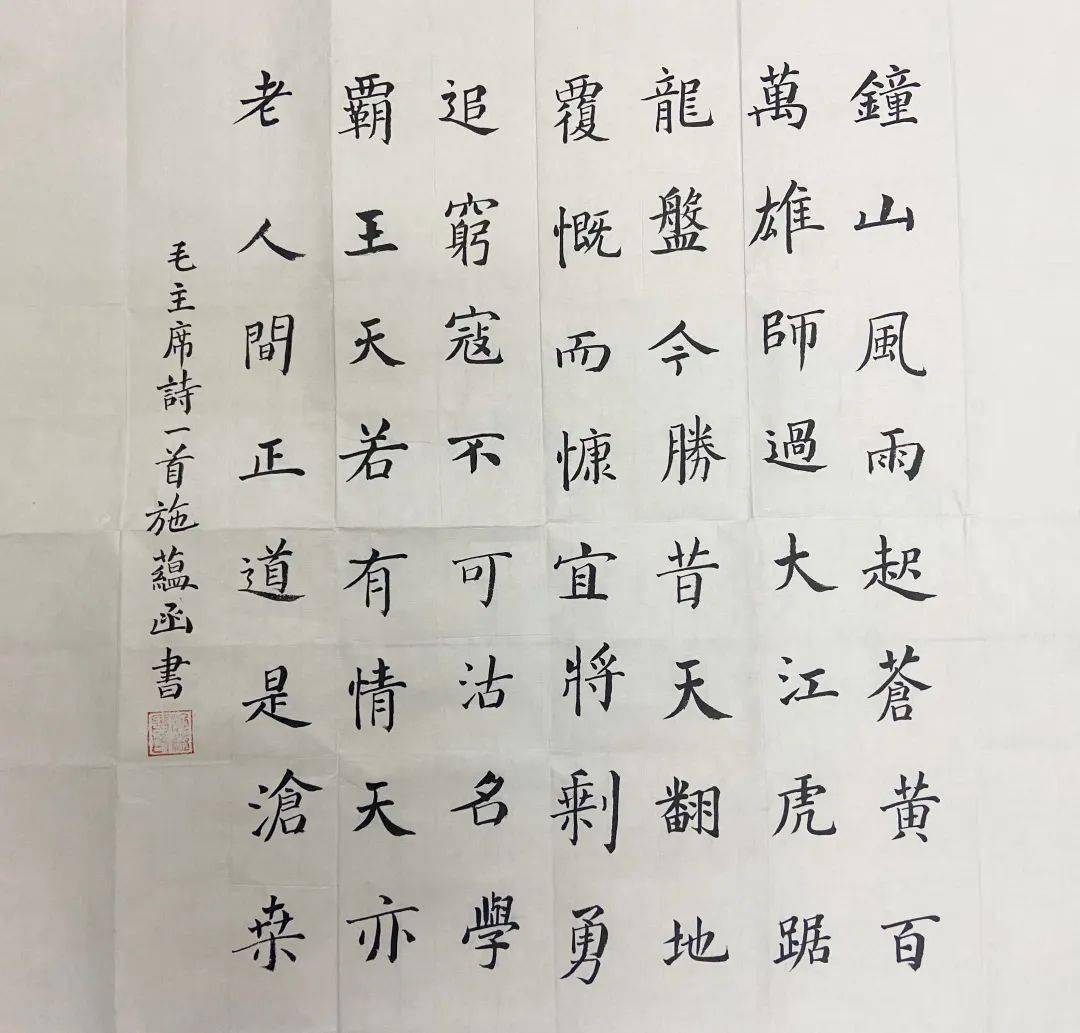 鐘山風雨起蒼黄百
萬雄師過大江虎踞
龍盤今勝昔天翻地
覆慨而慷宜將剩勇
追窮寇不可沽名學
霸王天若有情天亦
老人間正道是滄桒
毛主席詩一首施蘊函書